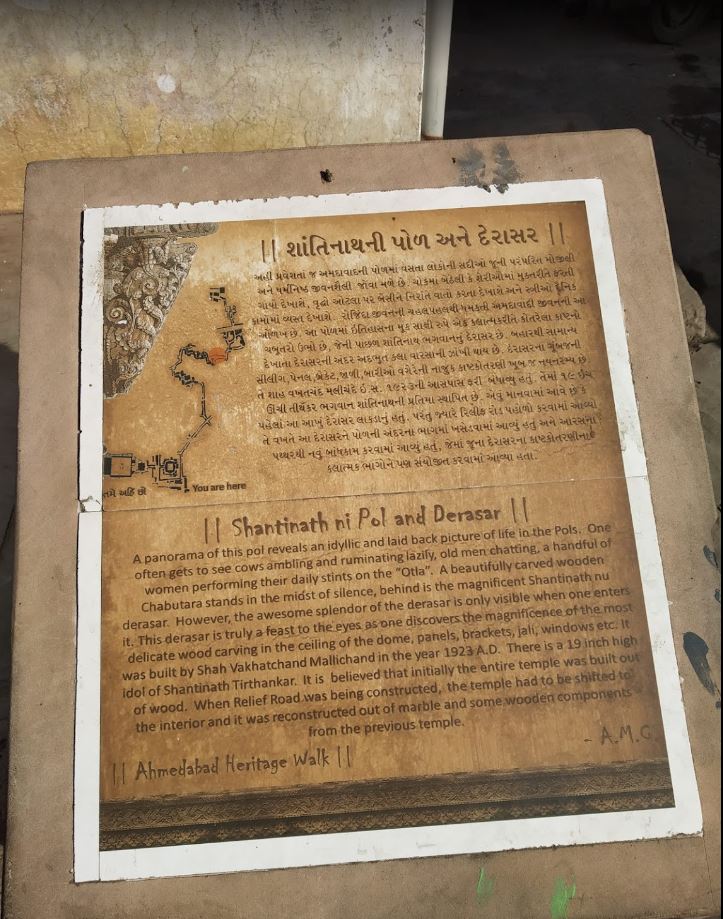 || શાંતિનાથની પોળ અને દેરાસર ||
અહીં પ્રવેશતા જ અમદાવાદની પોળમાં વસતા લોકોની સદીઓ જૂની પરંપરિત મોજીલી
અને ધર્મનિષ્ઠ જીવનશૈલી જોવા મળે છે. ચોકમાં બેઠેલી કે શેરીઓમાં મુક્તરીતે ફરતી
ગાયો દેખાશે, વૃદ્ધો ઓટલા પર બેસીને નિરાંતે વાતો કરતા દેખાશે અને સ્ત્રીઓ દૈનિક
કામોમાં વ્યસ્ત દેખાશે. રોજિંદા જીવનની ચહલપહલથી ધમકતી અમદાવાદી જીવનની આ
ઓળખ છે. આ પોળમાં ઈતિહાસના મૂક સાક્ષી રૂપે એક કલાત્મકરીતે કોતરેલા કાષ્ટનો
ચબુતરો ઉભો છે, જેની પાછળ શાંતિનાથ ભગવાનનું દેરાસર છે. બહારથી સામાન્ય
દેખાતા દેરાસરની અંદર અદભુત કલા વારસાની ઝાંખી થાય છે. દેરાસરના ગુંબજની
સીલીંગ, પેનલ, બ્રેકેટ, જાળી, બારીઓ વગેરેની નાજુક કાષ્ટકોતરણી ખૂબ જ નયનરમ્ય છે.
તે શાહ વખતચંદ મલીચંદે ઈ.સ. ૧૯૨૩ની આસપાસ ફરી બંધાવ્યું હતું. તેમાં ૧૯ ઇંચ
ઊંચી તીર્થંકર ભગવાન શાંતિનાથની પ્રતિમા સ્થાપિત છે. એવું માનવામાં આવે છે કે
પહેલાં આ આખું દેરાસર લાકડાનું હતું. પરંતુ જ્યારે રિલીફ રોડ પહોળો કરવામાં આવ્યો
તે વખતે આ દેરાસરને પોળની અંદરના ભાગમાં ખસેડવામાં આવ્યું હતું અને આરસના
પથ્થરથી નવું બાંધકામ કરવામાં આવ્યું હતું, જેમાં જુના દેરાસરના કાષ્ટકોતરણીના
કલાત્મક ભાગોને પણ સંયોજીત કરવામાં આવ્યા હતા.
તમે અહિં છો
You are here
|| Shantinath ni Pol and Derasar ||
A panorama of this pol reveals an idyllic and laid back picture of life in the Pols. One
often gets to see cows ambling and ruminating lazily, old men chatting, a handful of
women performing their daily stints on the “Otla”. A beautifully carved wooden
Chabutara stands in the midst of silence, behind is the magnificent Shantinath nu
derasar. However, the awesome splendor of the derasar is only visible when one enters
it. This derasar is truly a feast to the eyes as one discovers the magnificence of the most
delicate wood carving in the ceiling of the dome, panels, brackets, jali, windows etc. It
was built by Shah Vakhatchand Mallichand in the year 1923 A.D. There is a 19 inch high
idol of Shantinath Tirthankar. It is believed that initially the entire temple was built out
of wood. When Relief Road was being constructed, the temple had to be shifted to
the interior and it was reconstructed out of marble and some wooden components
from the previous temple.
- A.M.C.
|| Ahmedabad Heritage Walk ||